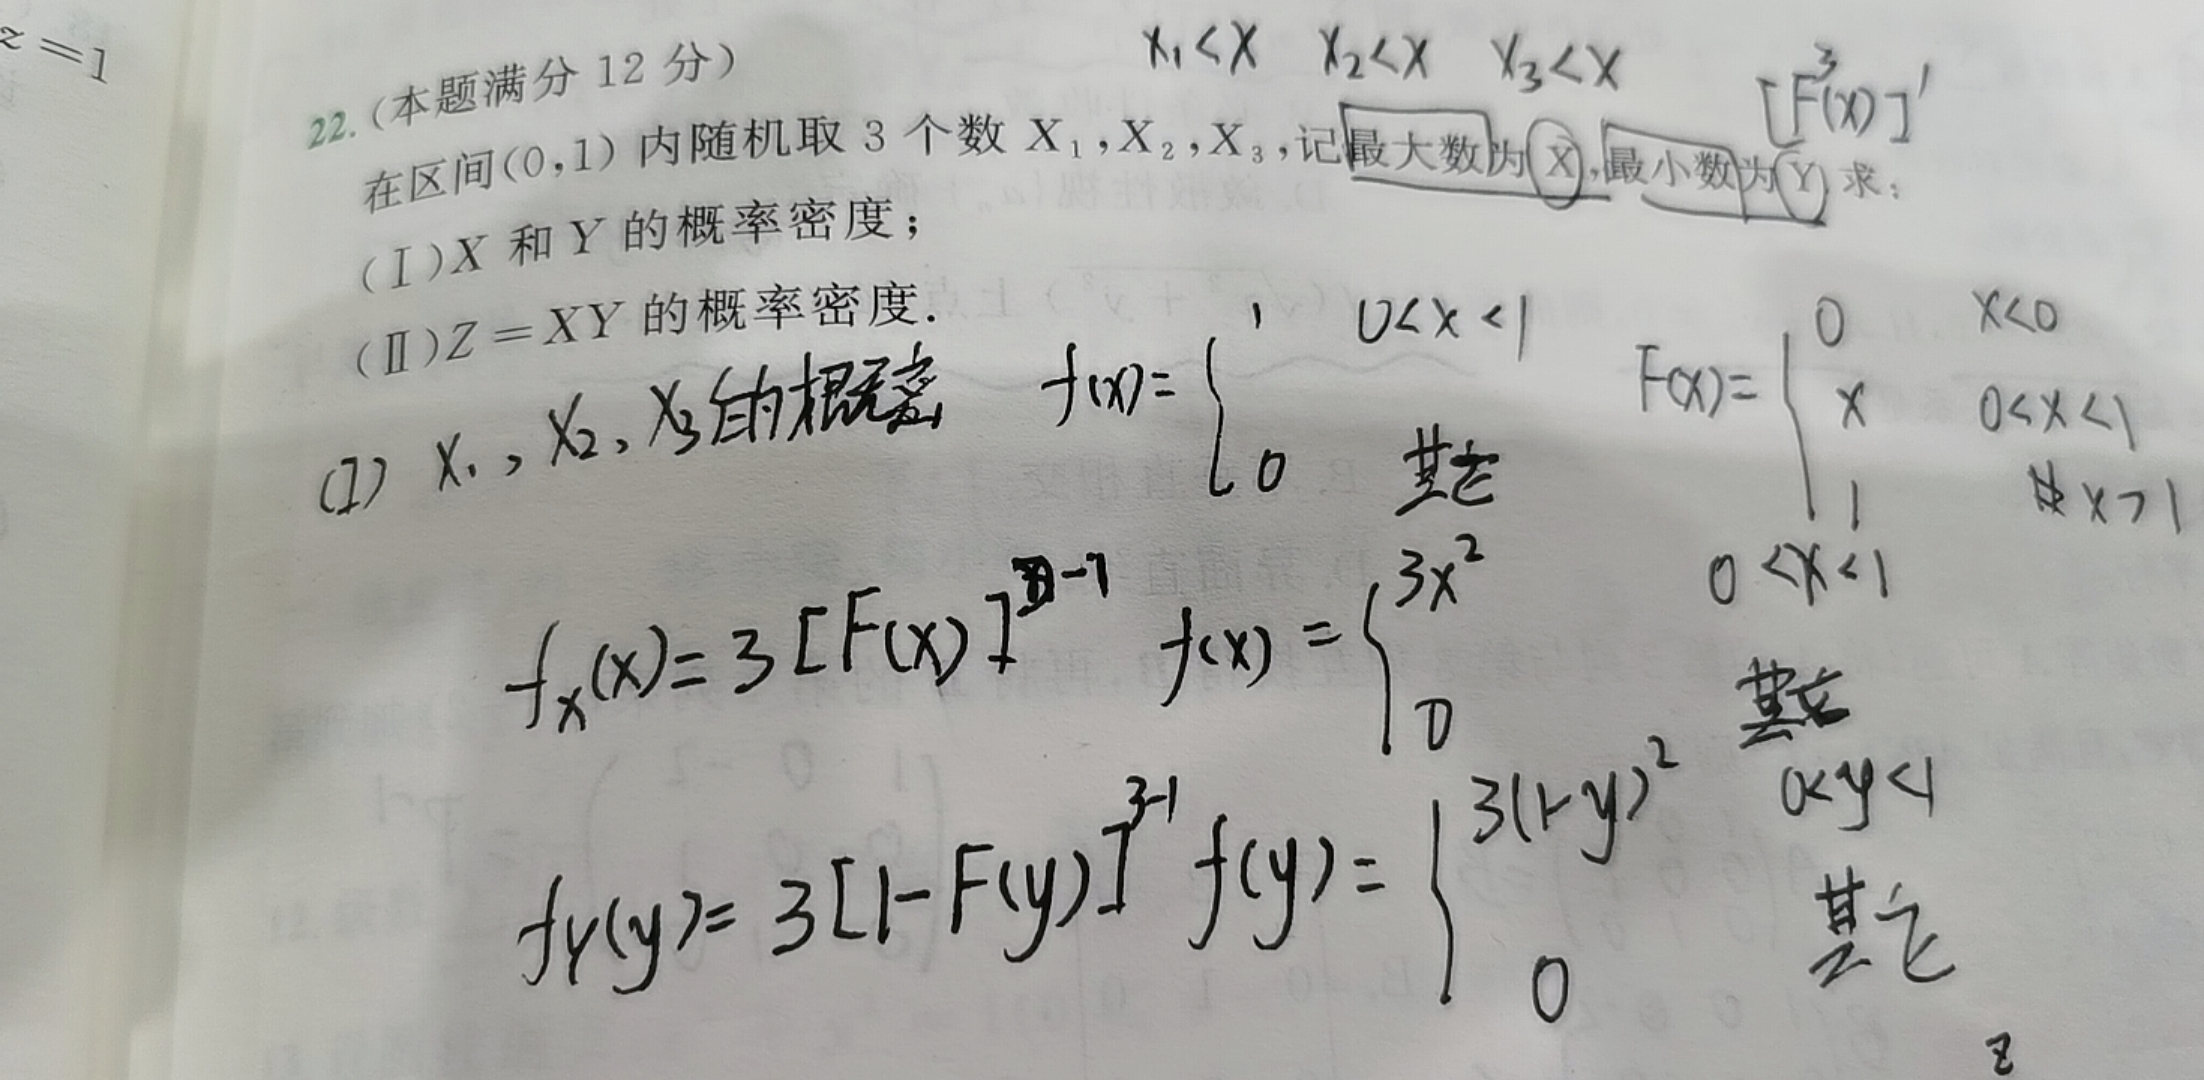 z=1
x₁<x x₂<x x₃<x
[F³(x)]′
22.(本题满分 12 分)
在区间(0,1) 内随机取 3 个数 X₁,X₂,X₃,记最大数为X,最小数为Y,求:
(Ⅰ)X 和 Y 的概率密度;
(Ⅱ)Z=XY 的概率密度.
(I) X₁, X₂, X₃的概密 f(x)={1 0<x<1
0 其它
F(x)={0 x<0
x 0<x<1
1 x>1
fₓ(x)=3[F(x)]³⁻¹ f(x)={3x² 0<x<1
0 其它
fY(y)=3[1-F(y)]³⁻¹ f(y)={3(1-y)² 0<y<1
0 其它
z